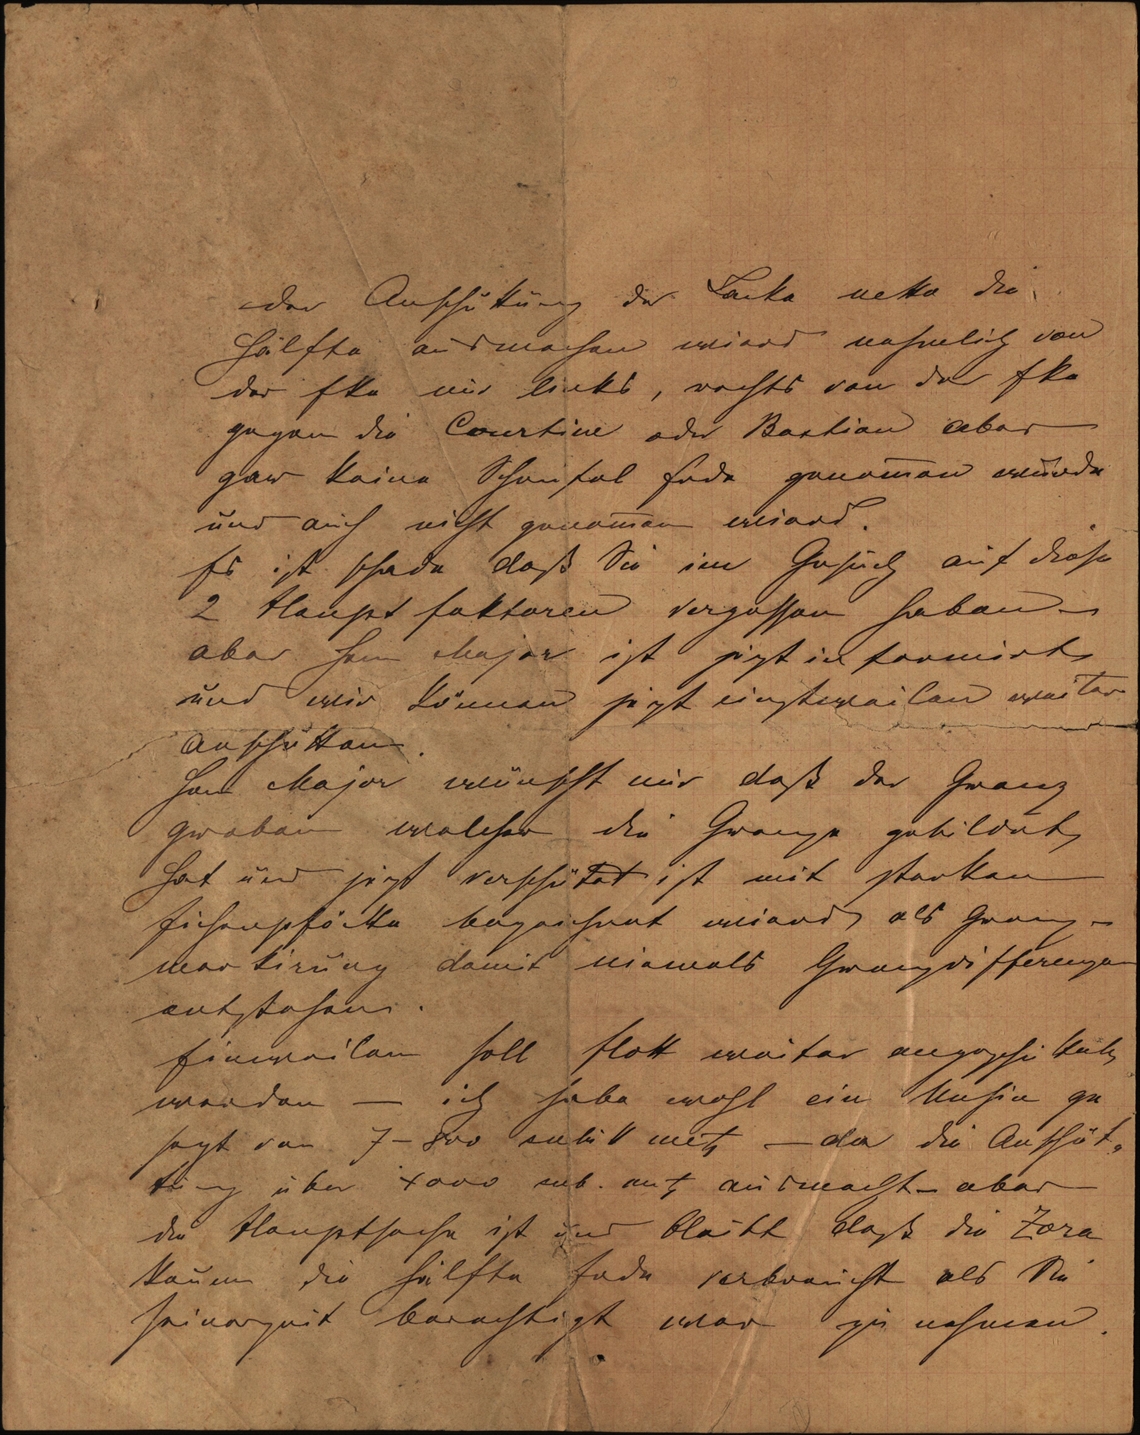 der Anschüttung der Lacke netto die
Hälfte ausmachen wierd nehmlich von
der Eke nur links, rechts von der Eke
gegen die Courtine oder Bastion aber
gar keine Schaufel Erde genom̅en würde
und auch nicht genom̅en wierd.
Es ist schade daß Sie im Gesuch auf diese
2 Hauptfaktoren vergessen haben
aber Herr Major ist jezt informirt
und wir können jezt einstweilen weiter
anschütten.
Herr Major wünscht nur daß der Grenz
graben welcher die Grenze gebildet
hat und jezt verschütet ist mit starken
Eichenpflöcke bezeichnet wierd, als Grenz-
markirung damit niemals Grenzdifferenzen
entstehen.
Einweilen soll flott weiter angeschüttet
werden — ich habe wohl ein
sagt von 7–800 cubik met — der die Anschüt-
tung über 4000 cub. met ausmacht – aber
die Hauptsache ist und bleibt daß die Zora
kaum die Hälfte Erde verbraucht als Sie
seinerzeit berechtigt war zu nehmen.